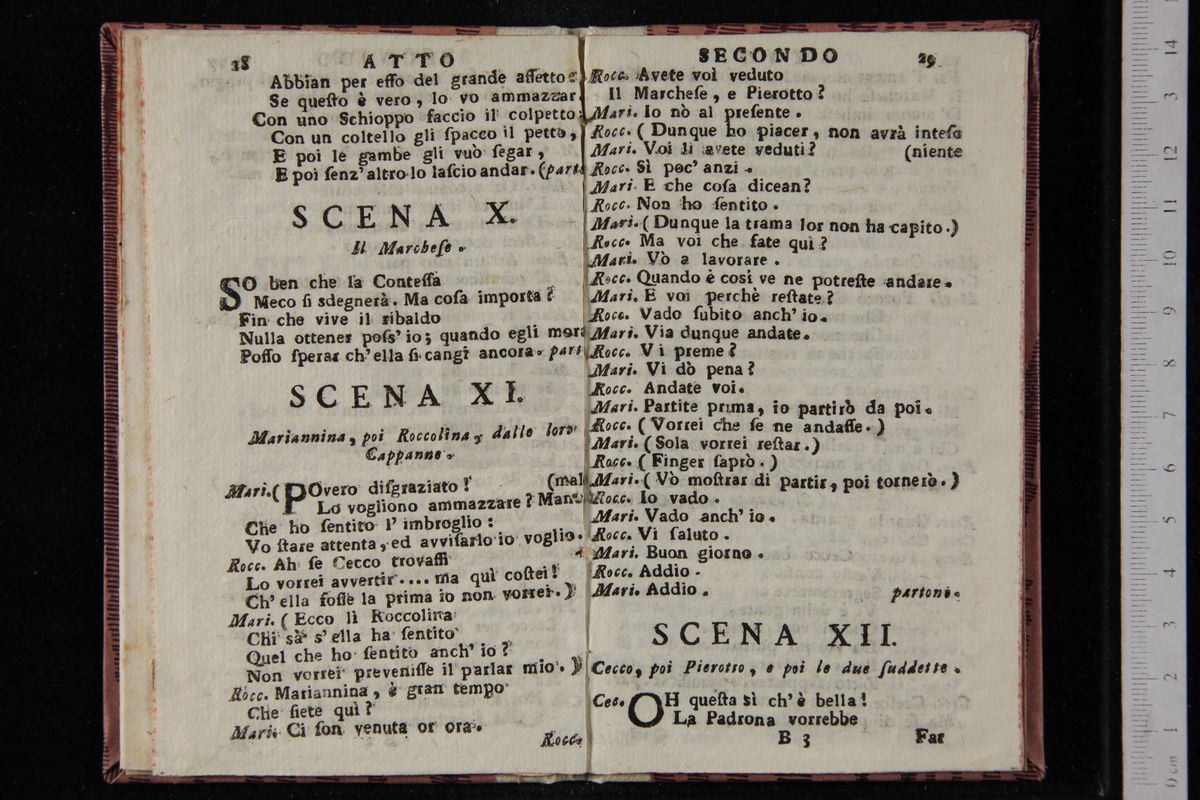 28 ATTO
Abbian per eſſo del grande affetto:
Se queſto è vero, lo vo ammazzar.
Con uno Schioppo faccio il colpetto;
Con un coltello gli ſpacco il petto,
E poi le gambe gli vuò ſegar,
E poi ſenz'altro lo laſcio andar. (part
SCENA X.
Il Marcheſe.
SO ben che la Conteſſa
Meco ſi sdegnerà. Ma coſa importa?
Fin che vive il ribaldo
Nulla ottener poſs'io; quando egli mora
Poſſo ſperar ch'ella ſi cangi ancora. part
SCENA XI.
Mariannina, poi Roccolina, dalle loro
Cappanne.
Mari. (POvero diſgraziato! (mal
Lo vogliono ammazzare? Man-
Che ho ſentito l'imbroglio:
Vo ſtare attenta, ed avviſarlo io voglio.
Rocc. Ah ſe Cecco trovaſſi
Lo vorrei avvertir.... ma quì coſtei!
Ch'ella foſſe la prima io non vorrei.)
Mari. (Ecco lì Roccolina
Chi sà s'ella ha ſentito
Quel che ho ſentito anch'io?
Non vorrei preveniſſe il parlar mio.)
Rocc. Mariannina, è gran tempo
Che ſiete quì?
Mari. Ci ſon venuta or ora.
Rocc.
SECONDO 29
Rocc. Avete voi veduto
Il Marcheſe, e Pierotto?
Mari. Io nò al preſente.
Rocc. (Dunque ho piacer, non avrà inteſo
Mari. Voi li avete veduti? (niente
Rocc. Sì poc'anzi.
Mari. E che coſa dicean?
Rocc. Non ho ſentito.
Mari. (Dunque la trama lor non ha capito.)
Rocc. Ma voi che fate quì?
Mari. Vò a lavorare.
Rocc. Quando è così ve ne potreſte andare.
Mari. E voi perchè reſtate?
Rocc. Vado ſubito anch'io.
Mari. Via dunque andate.
Rocc. Vi preme?
Mari. Vi dò pena?
Rocc. Andate voi.
Mari. Partite prima, io partirò da poi.
Rocc. (Vorrei che ſe ne andaſſe.)
Mari. (Sola vorrei reſtar.)
Rocc. (Finger ſaprò.)
Mari. (Vò moſtrar di partir, poi tornerò.)
Rocc. Io vado.
Mari. Vado anch'io.
Rocc. Vi ſaluto.
Mari. Buon giorno.
Rocc. Addio.
Mari. Addio. partono.
SCENA XII.
Cecco, poi Pierotto, e poi le due ſuddette.
Cec. OH queſta sì ch'è bella!
La Padrona vorrebbe
B 3 Far
0 cm 1 2 3 4 5 6 7 8 9 10 11 12 13 14